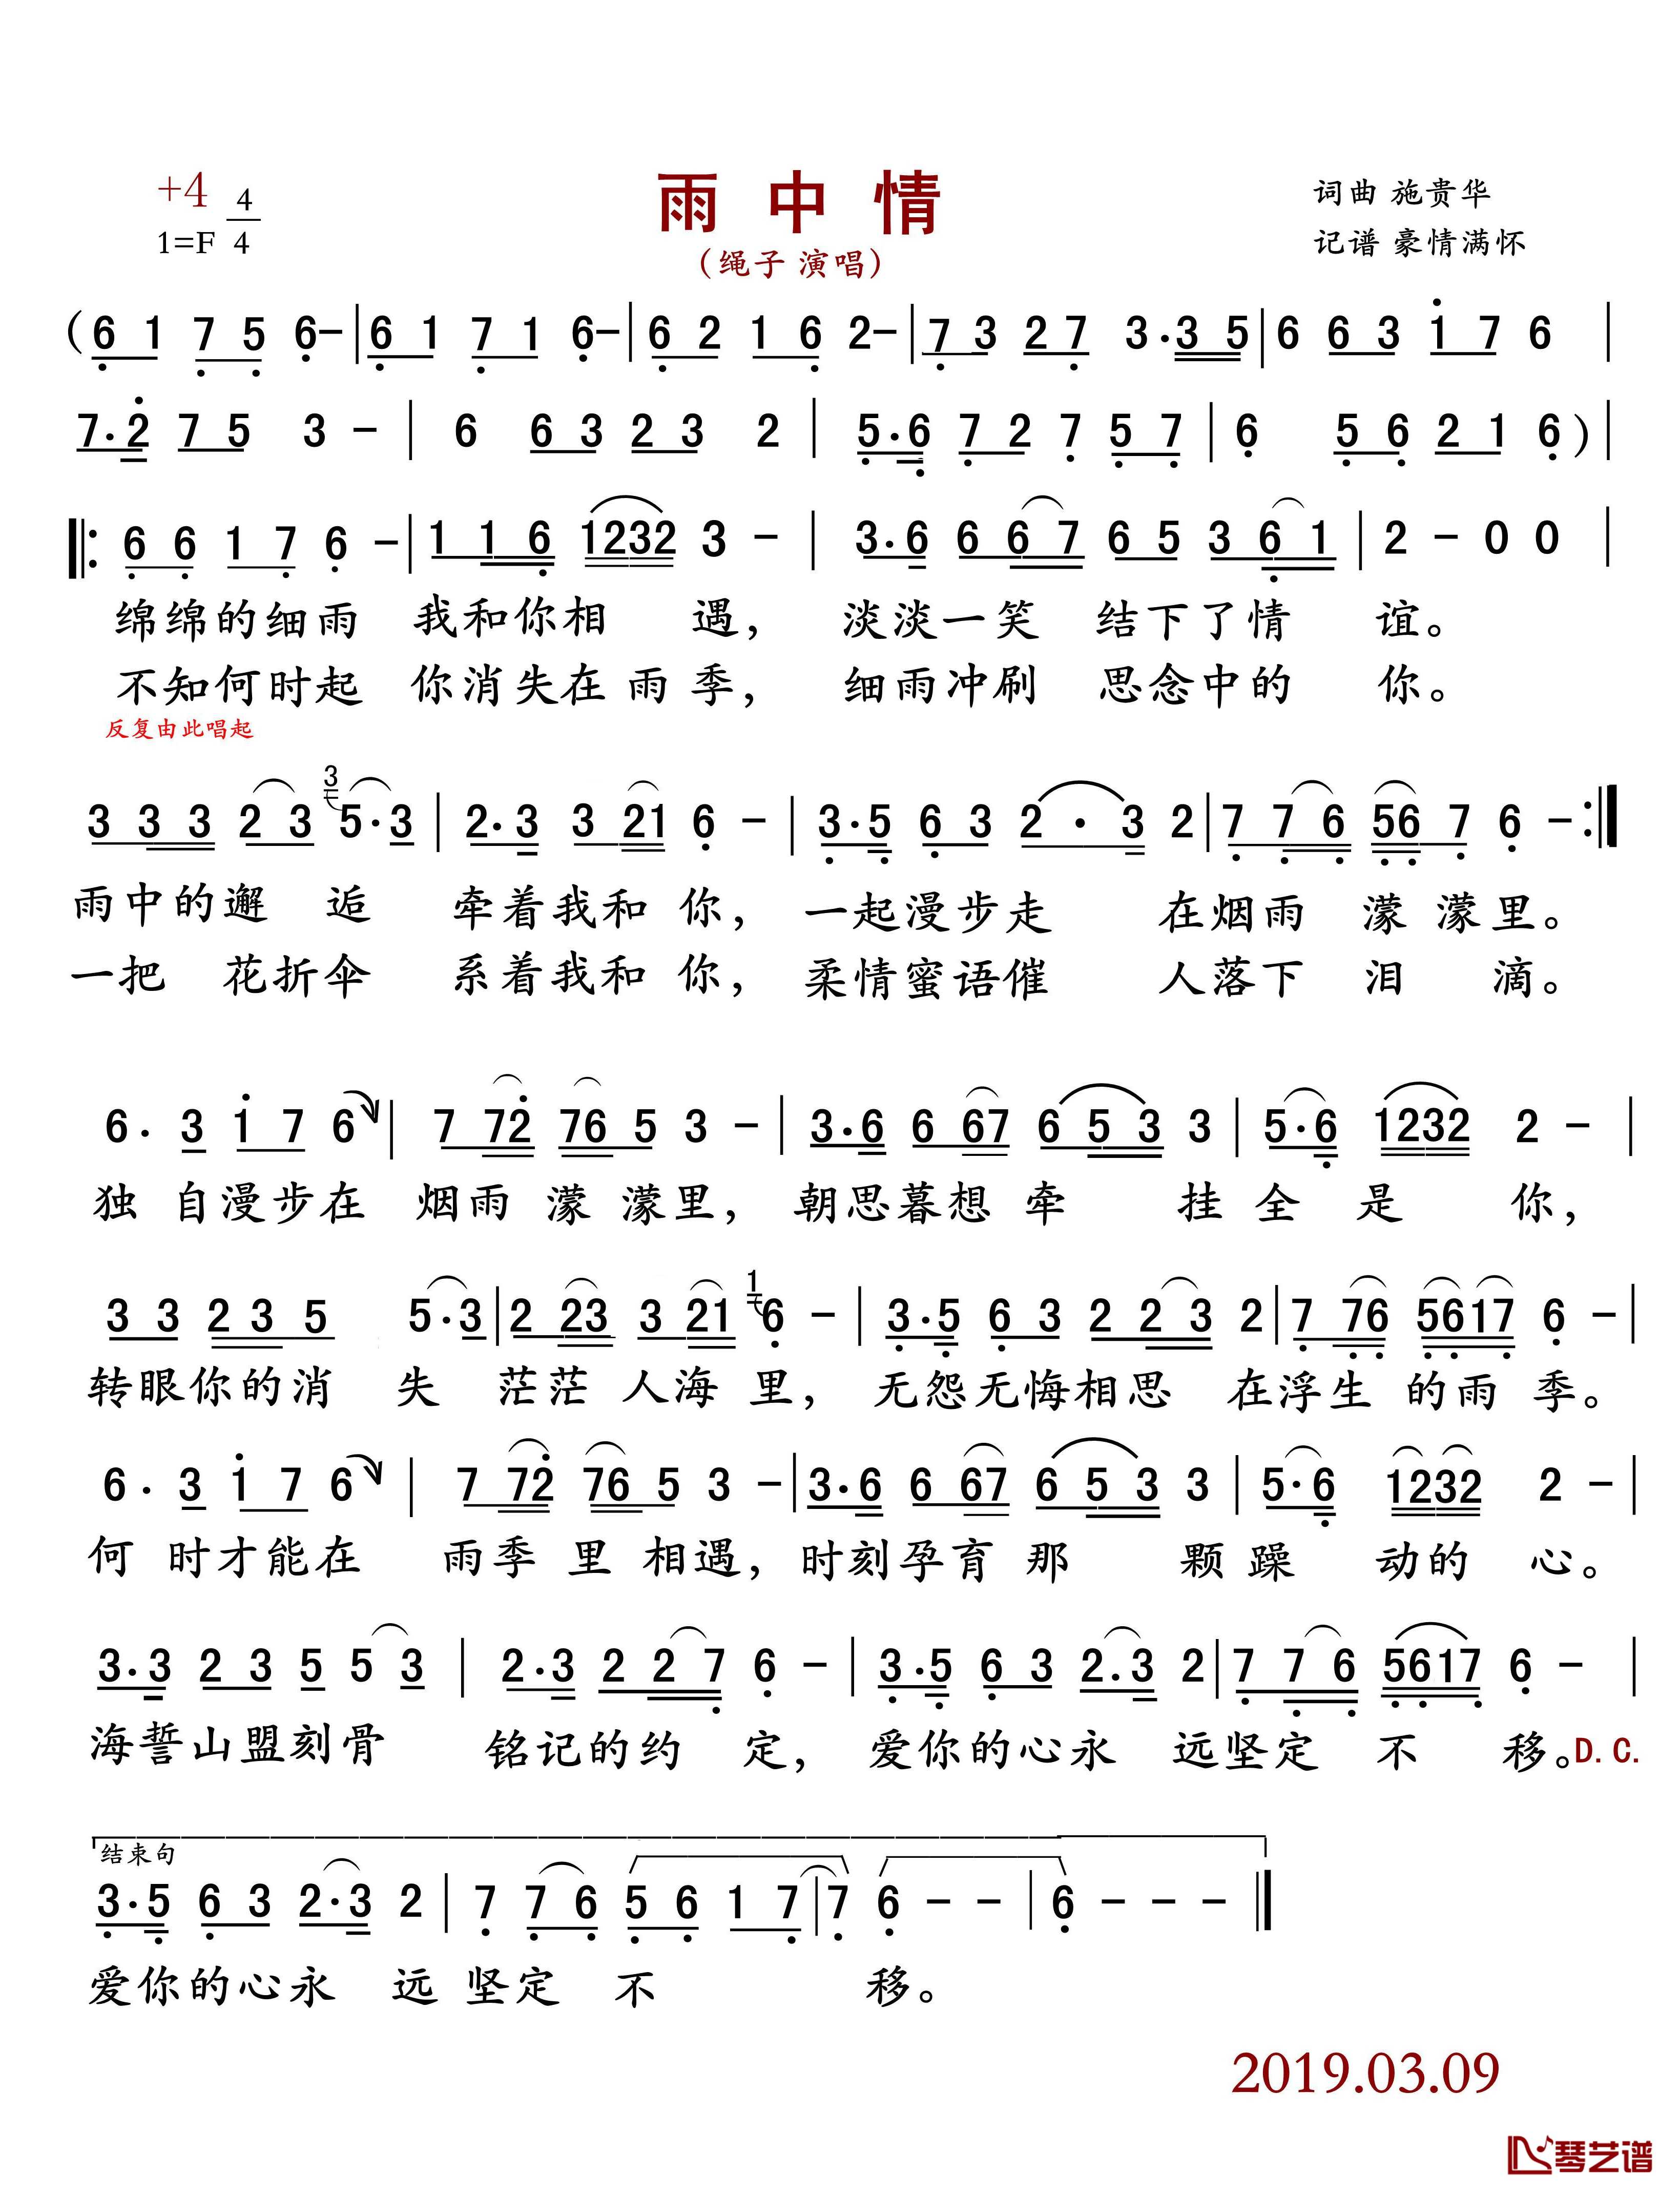 +4 4
1=F 4
雨中情
(绳子 演唱)
词曲 施贵华
记谱 豪情满怀
(6 1 7 5 6- | 6 1 7 1 6- | 6 2 1 6 2- | 7 3 2 7 3·3 5 | 6 6 3 1 7 6 |
7·2 7 5 3 - | 6 6 3 2 3 2 | 5·6 7 2 7 5 7 | 6 5 6 2 1 6) |
‖: 6 6 1 7 6 - | 1 1 6 1232 3 - | 3·6 6 6 7 6 5 3 6 1 | 2 - 0 0 |
绵绵的细雨 我和你相 遇, 淡淡一笑 结下了情 谊。
不知何时起 你消失在雨季, 细雨冲刷 思念中的 你。
反复由此唱起
3
3 3 3 2 3 5·3 | 2·3 3 21 6 - | 3·5 6 3 2 · 3 2 | 7 7 6 56 7 6 - :‖
雨中的邂 逅 牵着我和 你, 一起漫步走 在烟雨 濛 濛里。
一把 花折伞 系着我和 你, 柔情蜜语催 人落下 泪 滴。
6· 3 1 7 6 | 7 72 76 5 3 - | 3·6 6 67 6 5 3 3 | 5·6 1232 2 - |
独 自漫步在 烟雨 濛 濛里, 朝思暮想 牵 挂 全 是 你,
1
3 3 2 3 5 5·3 | 2 23 3 21 6 - | 3·5 6 3 2 2 3 2 | 7 76 5617 6 - |
转眼你的消 失 茫茫 人海 里, 无怨无悔相思 在浮生 的雨 季。
6· 3 1 7 6 | 7 72 76 5 3 - | 3·6 6 67 6 5 3 3 | 5·6 1232 2 - |
何 时才能在 雨季 里 相遇, 时刻孕育 那 颗 躁 动的 心。
3·3 2 3 5 5 3 | 2·3 2 2 7 6 - | 3·5 6 3 2·3 2 | 7 7 6 5617 6 - |
海誓山盟刻骨 铭记的约 定, 爱你的心永 远坚定 不 移。D.C.
结束句
3·5 6 3 2·3 2 | 7 7 6 5 6 1 7 | 7 6 - - | 6 - - - ‖
爱你的心永 远 坚定 不 移。
2019.03.09
琴艺谱